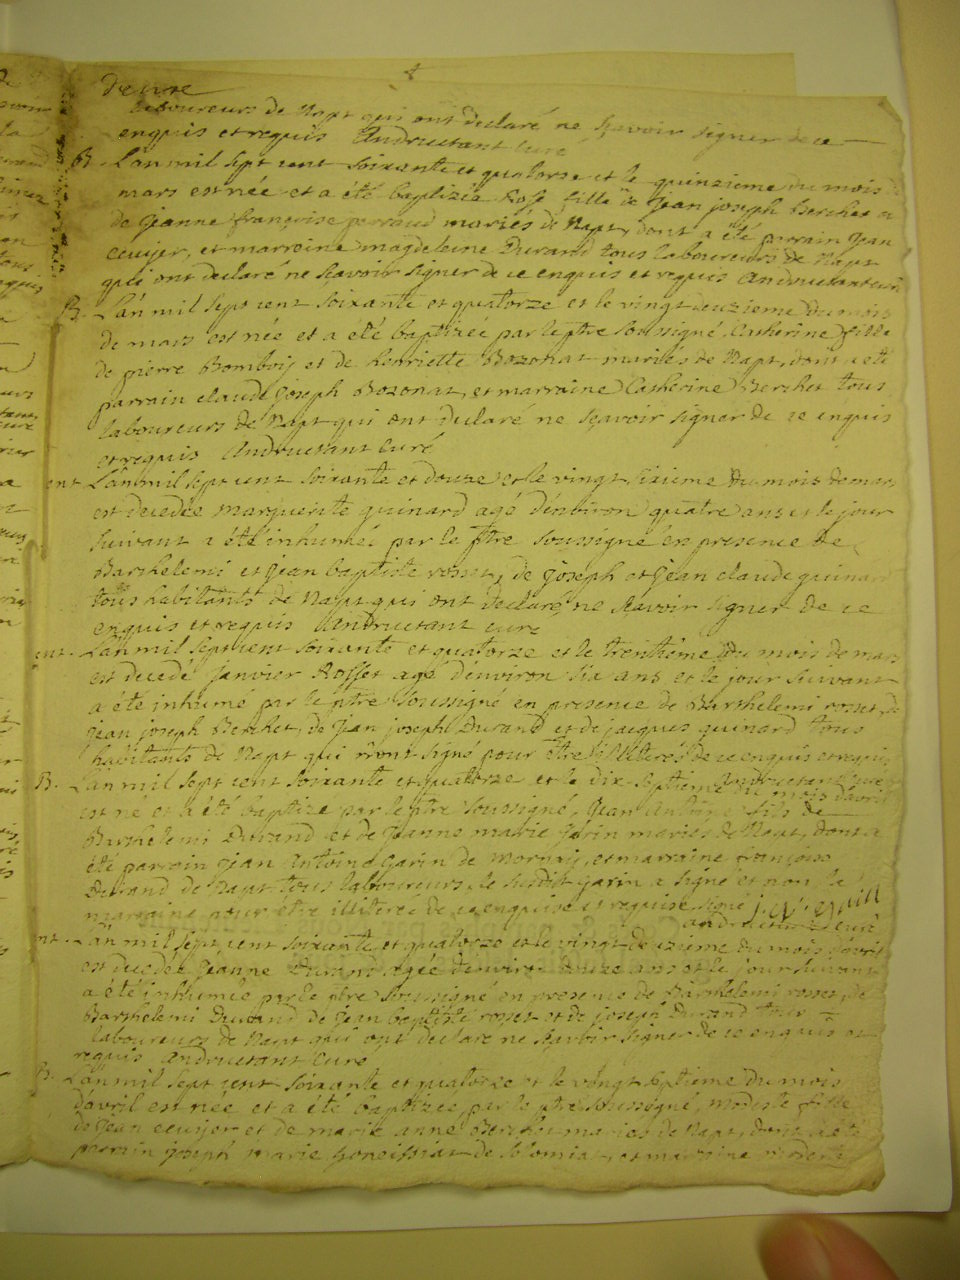 4
laboureurs de Napt qui ont declaré ne sçavoir signer de ce
enquis et requis Andruetant curé
B. L'an mil sept cent soixante et quatorse et le quinzieme du mois de
mars est née et a été baptizée Rose fille de Jean joseph Berchet et
de jeanne françoise perraud mariés de Napt, dont a été parrain Jean
cuvier, et marreine magdeleine Durand tous laboureurs de Napt
qui ont declaré ne sçavoir signer de ce enquis et requis Andruetant curé
B. L'an mil sept cent soixante et quatorze et le vingt deuzieme du mois
de mars est née et a été baptizée par le ptre soussigné Catherine fille
de pierre Bomboy et de henriette Bozonat mariés de Napt, dont a été
parrain claude Joseph Bozonat, et marraine Catherine Berchet tous
laboureurs de Napt qui ont declaré ne sçavoir signer de ce enquis
et requis Andruetant curé
ent L'an mil sept cent soixante et douze et le vingt sixieme du mois de mars
est decedée marguerite guinard agé d'environ quatre ans et le jour
suivant a été inhumée par le ptre soussigné en presence de
Barthelemi et jean baptiste rosset, de Joseph et Jean claude guinard
tous habitants de Napt qui ont declaré ne sçavoir signer de ce
enquis et requis Andruetant curé
ent. L'an mil sept cent soixante et quatorze et le trentième du mois de mars
est decedé janvier Rosset agé d'environ six ans et le jour suivant
a été inhumé par le ptre soussigné en presence de Barthelemi rosset, de
jean joseph Berchet, de Jean joseph Durand et de jacques guinard tous
habitants de Napt qui n'ont signé pour être illiterés de ce enquis et requis
Andruetant curé
B. L'an mil sept cent soixante et quatorze et le dix septieme du mois d'avril
est né et a été baptizé par le ptre soussigné, Jean Antoine fils de
Barthelemi Durand et de Jeanne marie Jarin mariés de Napt, dont a
été parrain Jean Antoine Garin de Mornay, et marraine françoise
Durand de Napt tous laboureurs, le susdit garin a signé et non la
marraine pour être illiterée de ce enquise et requise signé
Andruetant curé
nt. L'an mil sept cent soixante et quatorze et le vingt deuzieme du mois d'avril
est decedée Jeanne Durand agée d'environ douze ans et le jour suivant
a été inhumée par le ptre soussigné en presence de Barthelemi rosset, de
Barthelemi Durand de Jean baptiste rosset et de joseph Durand tous
laboureurs de Napt qui ont declaré ne sçavoir signer de ce enquis et
requis Andruetant Curé
B. L'an mil sept cent soixante et quatorze et le vingt septieme du mois
d'avril est née et a été baptizée, par le ptre soussigné, modeste fille
de Jean cuvier et de marie anne Berchet mariés de Napt, dont a été
parrain joseph marie de et marraine